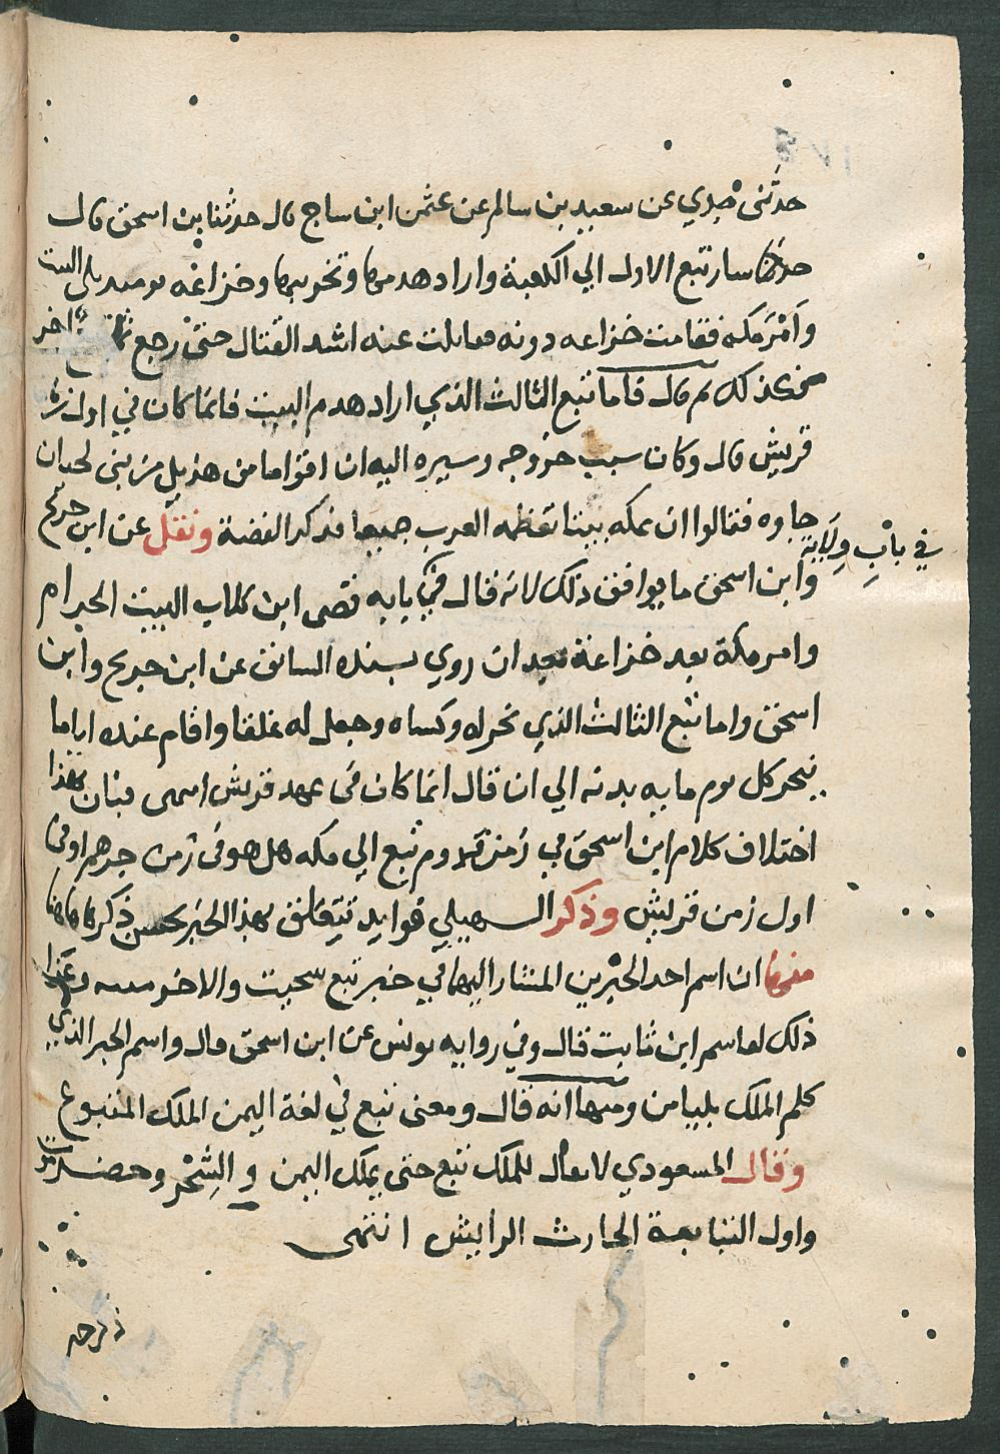 حدثنى جدي عن سعيد بن سالم عن عثمن ابن ساج قال حدثنا بن اسحق قال
سار تبع الاول الي الكعبة واراد هدمها وتخريبها وخزاعه يوميذ تلى البيت
وامر مكه فقامت خزاعه دونه فقاتلت عنه اشد القتال حتى رجع ثم اخر
فكذلك ثم قال فاما تبع الثالث الذي اراد هدم البيت فانما كان في اول
قريش قال وكان سبب خروجه وسيره اليه ان اقواما من هذيل من بني لحيان
جاوه فقالوا ان بمكه بيتا تعظمه العرب جميعا فذكر القصة ونقل عن ابن جريج
في باب ولاية
وابن اسحق ما يوافق ذلك لانه قال في بابه قصى ابن كلاب البيت الحرام
وامر مكة بعد خزاعة بعد ان روي بسنده السابق عن ابن جريج وابن
اسحق واما تبع الثالث الذي نحر له وكساه وجعل له غلقا واقام عنده اياما
ينحر كل يوم مايه بدنه الي ان قال انما كان في عهد قريش انتهى فبان بهذا
اختلاف كلام ابن اسحق في زمن قدوم تبع الي مكه هل هو في زمن جرهم او في
اول زمن قريش وذكر السهيلي فوايد تتعلق بهذا الخبر يحسن ذكرها هاهنا
منها ان اسم احد الحبرين المشار اليهما في خبر تبع سحيت والاخر منبه وعزا
ذلك لقاسم ابن ثابت قال وفي روايه يونس عن ابن اسحق قال واسم الحبر الذي
كلم الملك بليامن ومنها انه قال ومعنى تبع في لغة اليمن الملك المتبوع
وقال المسعودي لا يقال للملك تبع حتى يملك اليمن والشحر وحضرموت
واول التبابعة الحارث الرايش انتهى